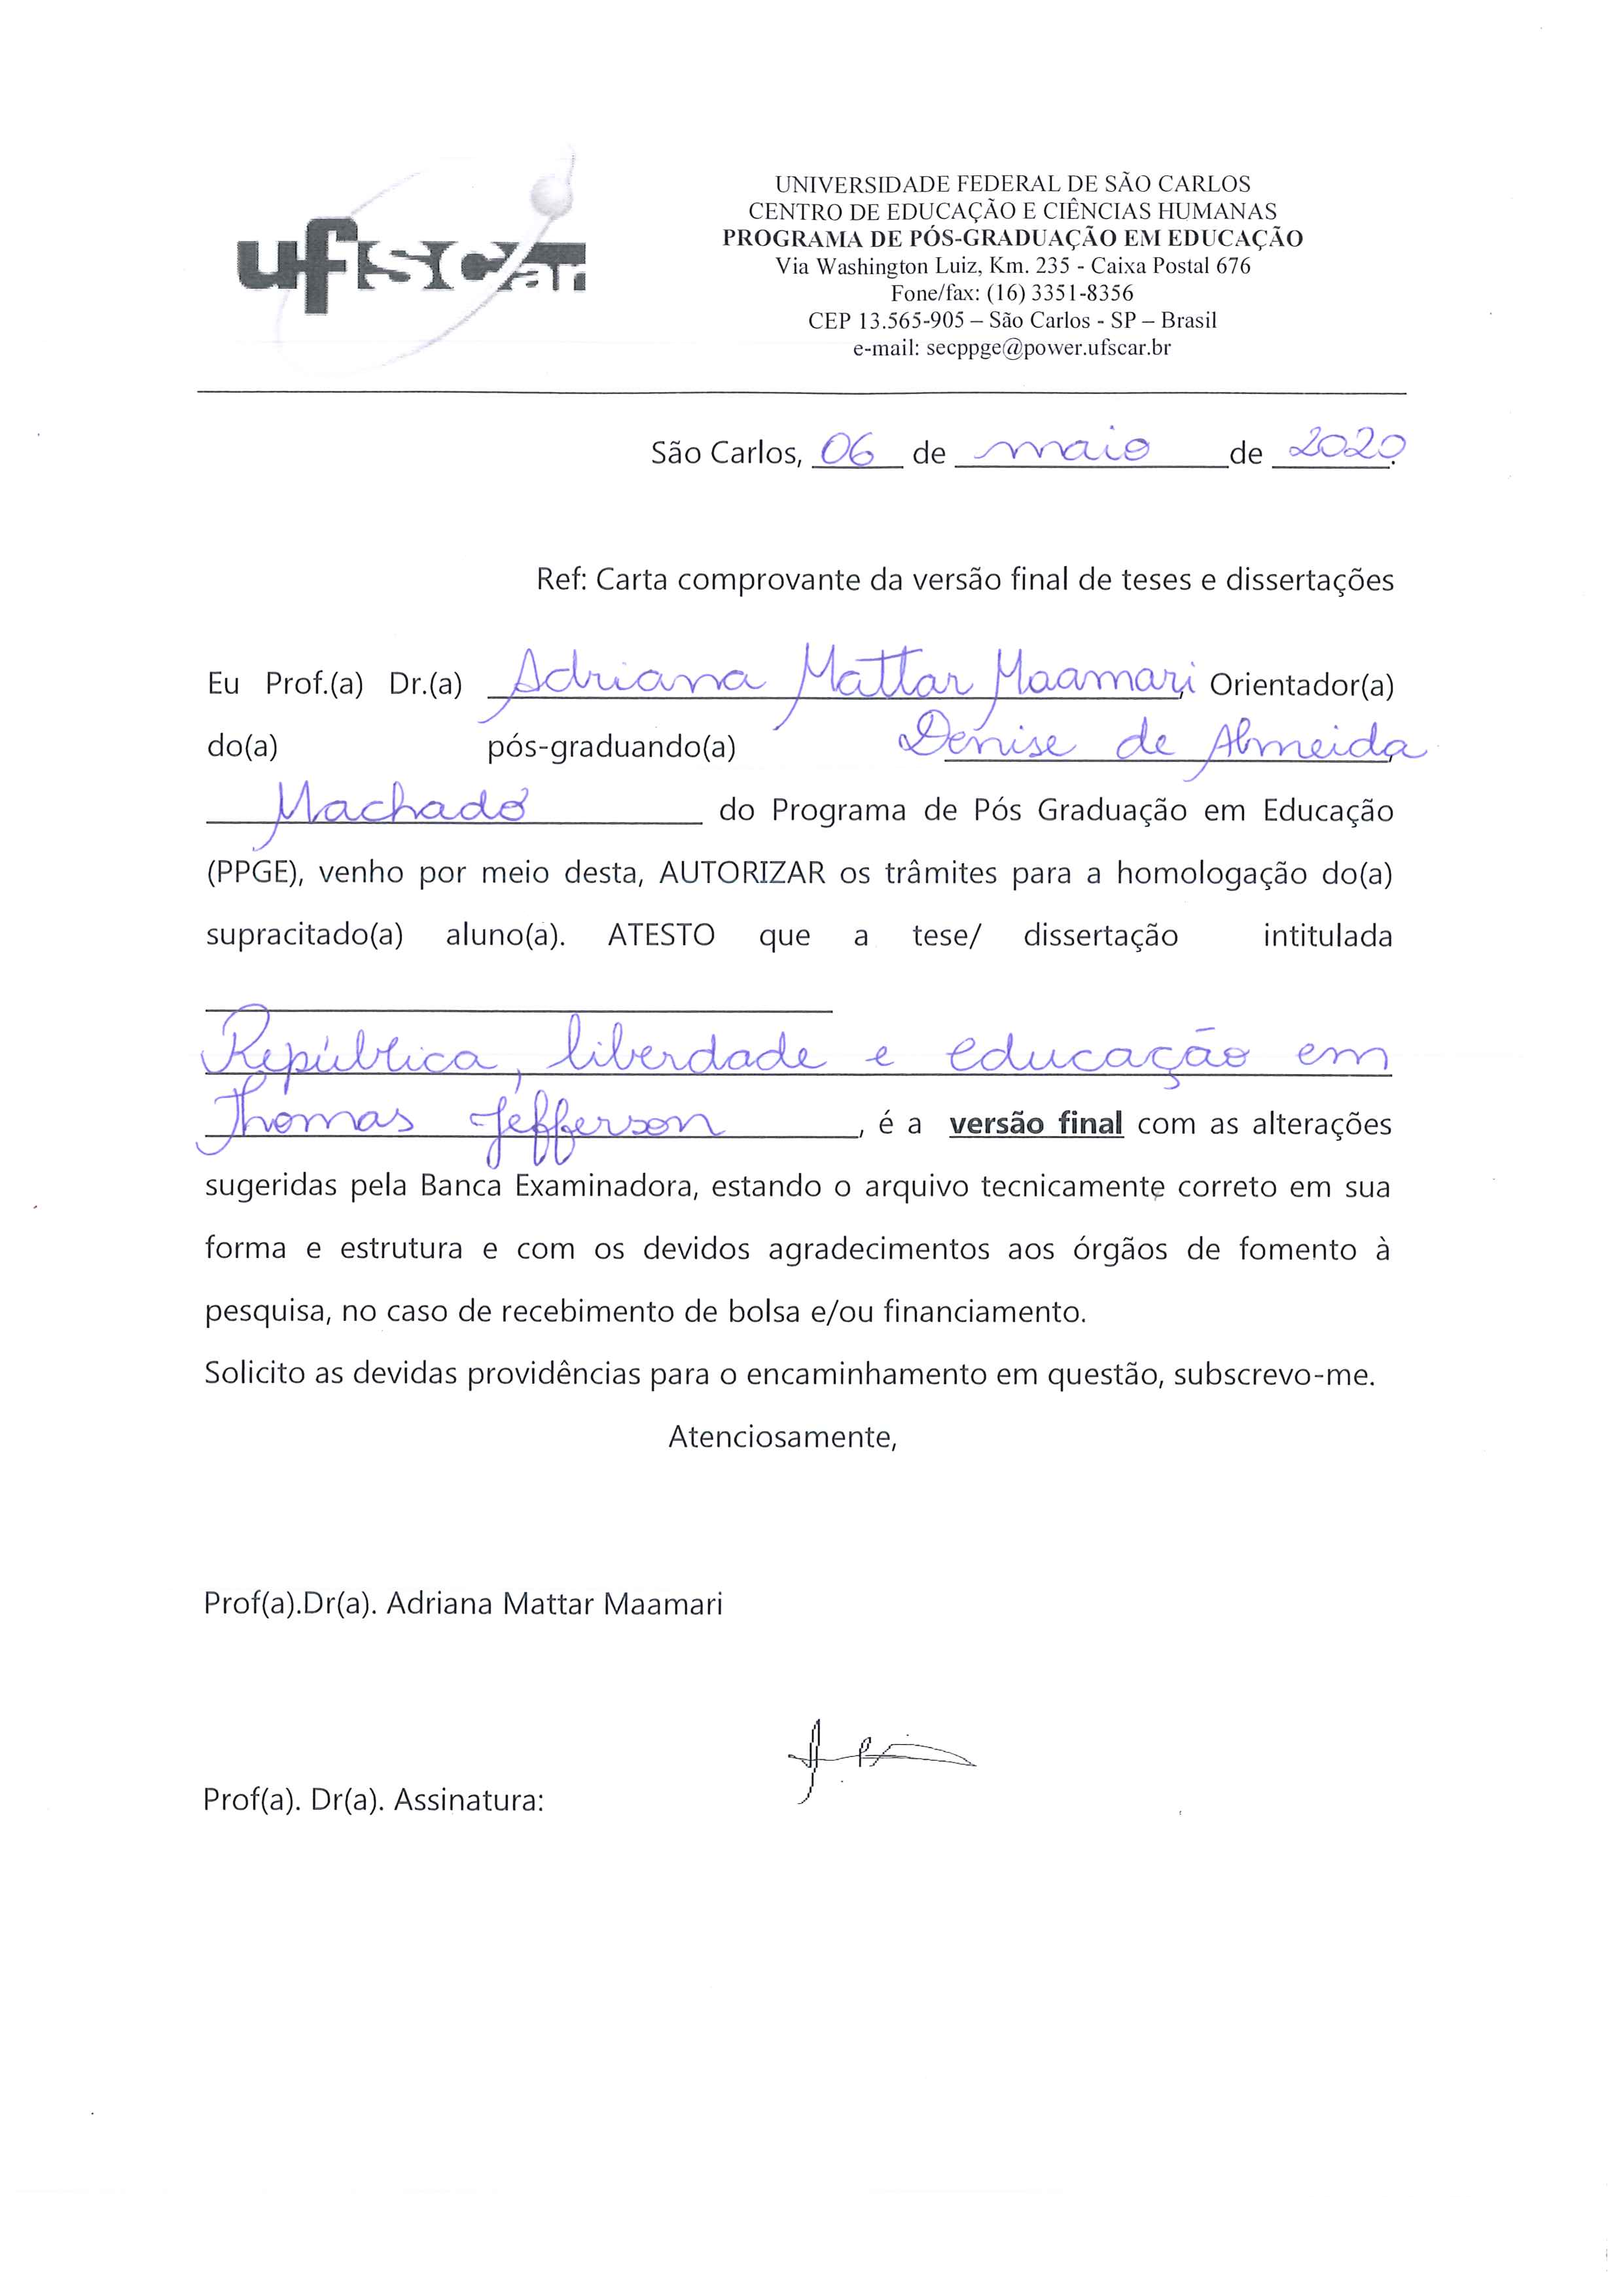 ufscar
UNIVERSIDADE FEDERAL DE SÃO CARLOS
CENTRO DE EDUCAÇÃO E CIÊNCIAS HUMANAS
PROGRAMA DE PÓS-GRADUAÇÃO EM EDUCAÇÃO
Via Washington Luiz, Km. 235 - Caixa Postal 676
Fone/fax: (16) 3351-8356
CEP 13.565-905 – São Carlos - SP – Brasil
e-mail: secppge@power.ufscar.br
São Carlos, 06 de maio de 2020.
Ref: Carta comprovante da versão final de teses e dissertações
Eu Prof.(a) Dr.(a) Adriana Mattar Maamari, Orientador(a)
do(a) pós-graduando(a) Denise de Almeida,
Machado do Programa de Pós Graduação em Educação
(PPGE), venho por meio desta, AUTORIZAR os trâmites para a homologação do(a)
supracitado(a) aluno(a). ATESTO que a tese/ dissertação intitulada
República, liberdade e educação em
Thomas Jefferson, é a versão final com as alterações
sugeridas pela Banca Examinadora, estando o arquivo tecnicamente correto em sua
forma e estrutura e com os devidos agradecimentos aos órgãos de fomento à
pesquisa, no caso de recebimento de bolsa e/ou financiamento.
Solicito as devidas providências para o encaminhamento em questão, subscrevo-me.
Atenciosamente,
Prof(a).Dr(a). Adriana Mattar Maamari
Prof(a). Dr(a). Assinatura: